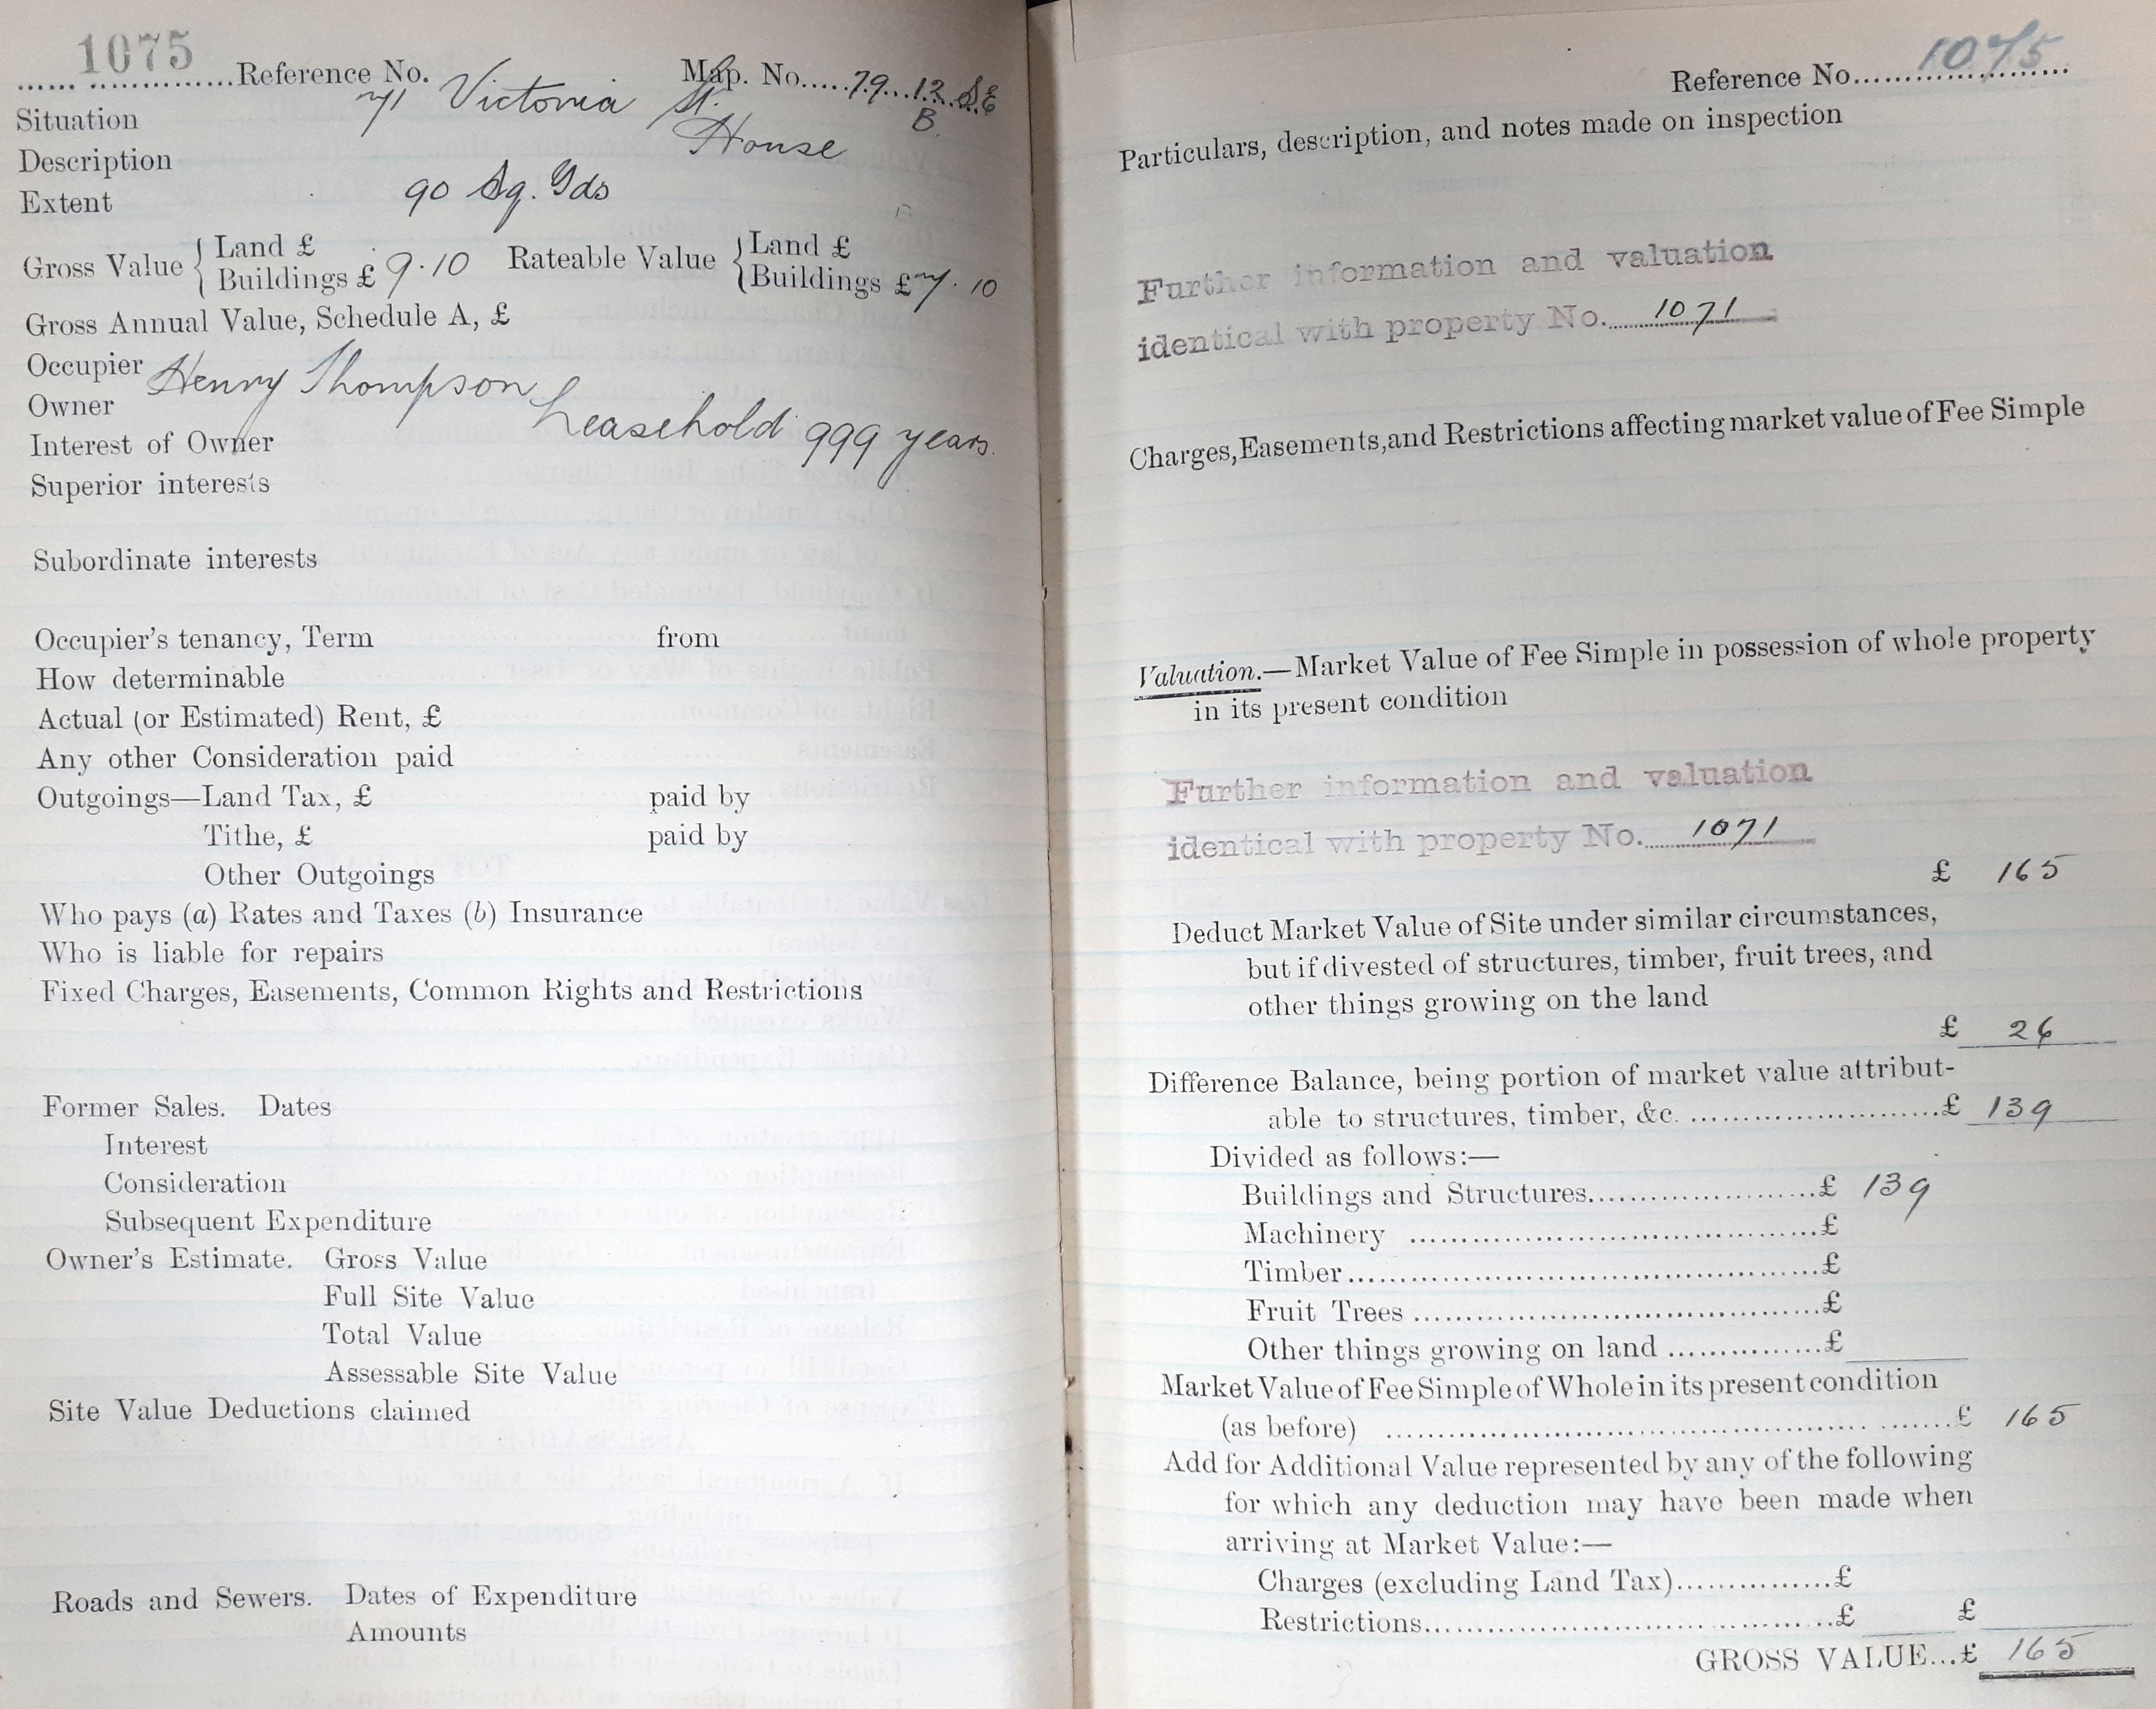 1075 Reference No. Map. No. 79. 12. SE
B.
Situation 71 Victoria St.
Description House
Extent 90 Sq. Yds
Gross Value { Land £
Buildings £ 9.10
Rateable Value { Land £
Buildings £ 7.10
Gross Annual Value, Schedule A, £
Occupier
Henry Thompson
Owner
Interest of Owner Leasehold 999 years.
Superior interests
Subordinate interests
Occupier's tenancy, Term from
How determinable
Actual (or Estimated) Rent, £
Any other Consideration paid
Outgoings—Land Tax, £ paid by
Tithe, £ paid by
Other Outgoings
Who pays (a) Rates and Taxes (b) Insurance
Who is liable for repairs
Fixed Charges, Easements, Common Rights and Restrictions
Former Sales. Dates
Interest
Consideration
Subsequent Expenditure
Owner's Estimate. Gross Value
Full Site Value
Total Value
Assessable Site Value
Site Value Deductions claimed
Roads and Sewers. Dates of Expenditure
Amounts
Reference No. 1075
Particulars, description, and notes made on inspection
Further information and valuation
identical with property No. 1071
Charges, Easements, and Restrictions affecting market value of Fee Simple
Valuation.—Market Value of Fee Simple in possession of whole property
in its present condition
Further information and valuation
identical with property No. 1071
£ 165
Deduct Market Value of Site under similar circumstances,
but if divested of structures, timber, fruit trees, and
other things growing on the land
£ 26
Difference Balance, being portion of market value attribut-
able to structures, timber, &c. £ 139
Divided as follows:—
Buildings and Structures £ 139
Machinery £
Timber £
Fruit Trees £
Other things growing on land £
Market Value of Fee Simple of Whole in its present condition
(as before) £ 165
Add for Additional Value represented by any of the following
for which any deduction may have been made when
arriving at Market Value:—
Charges (excluding Land Tax) £
Restrictions £ £
GROSS VALUE...£ 165